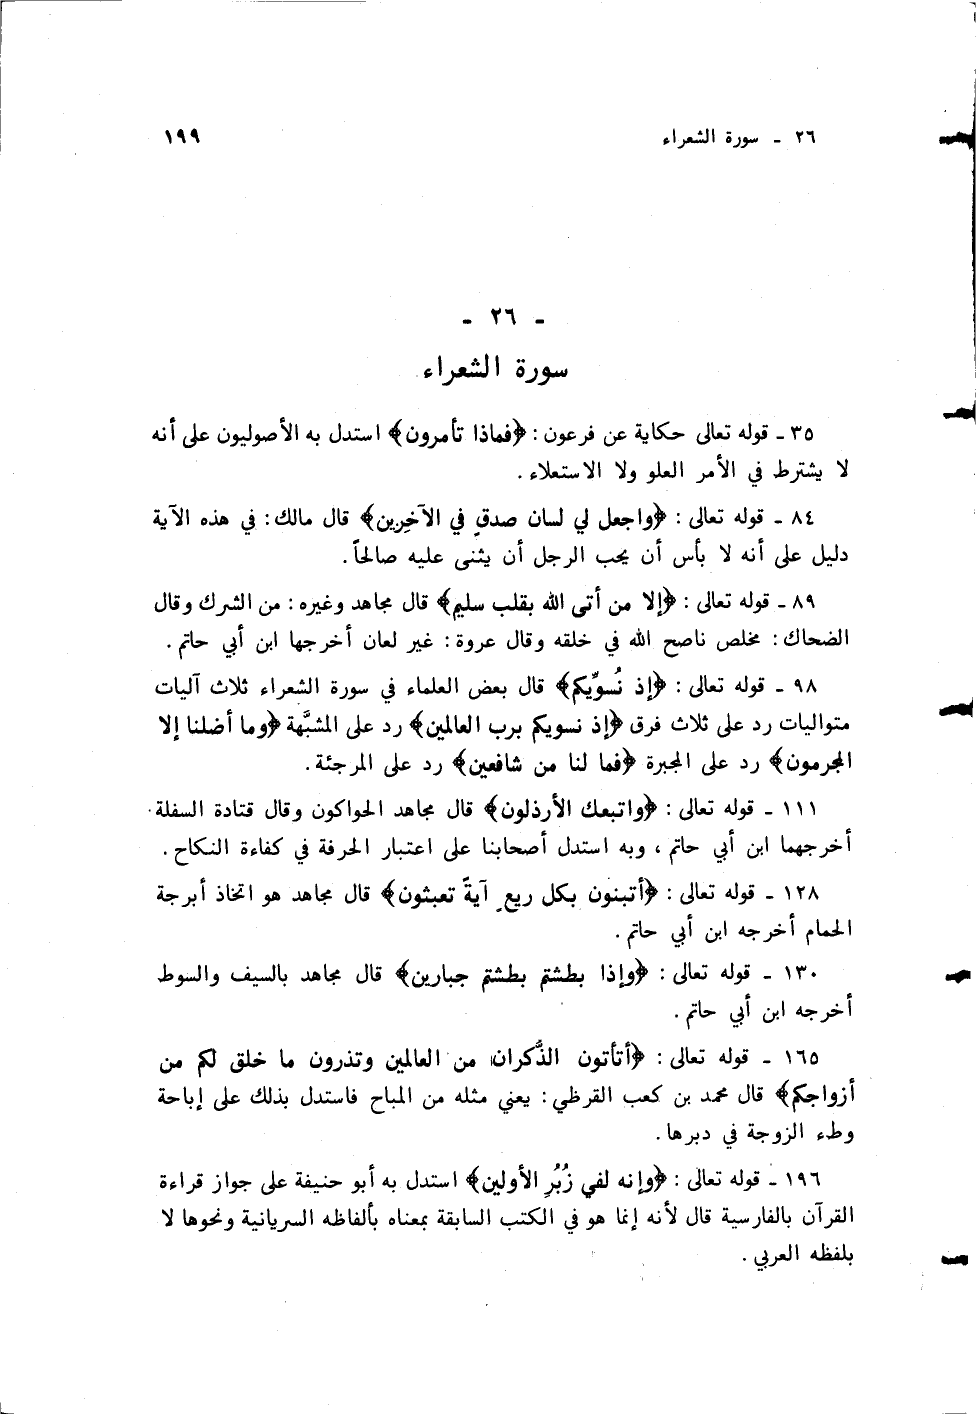 ٢٦ ـ سورة الشعراء ١٩٩
ـ ٢٦ ـ
سورة الشعراء
٣٥ ـ قوله تعالى حكاية عن فرعون : ﴿فماذا تأمرون﴾ استدل به الأصوليون على أنه
لا يشترط في الأمر العلو ولا الاستعلاء .
٨٤ ـ قوله تعالى : ﴿واجعل لي لسان صدقٍ في الآخِرين﴾ قال مالك : في هذه الآية
دليل على أنه لا بأس أن يحب الرجل أن يثنى عليه صالحاً .
٨٩ ـ قوله تعالى : ﴿إلا من أتى الله بقلب سليم﴾ قال مجاهد وغيره : من الشرك وقال
الضحاك : مخلص ناصح الله في خلقه وقال عروة : غير لعان أخرجها ابن أبي حاتم .
٩٨ ـ قوله تعالى : ﴿إذ نُسوِّيكم﴾ قال بعض العلماء في سورة الشعراء ثلاث آليات
متواليات رد على ثلاث فرق ﴿إذ نسويكم برب العالمين﴾ رد على المشبَّهة ﴿وما أضلنا إلا
المجرمون﴾ رد على المجبرة ﴿فما لنا من شافعين﴾ رد على المرجئة .
١١١ ـ قوله تعالى : ﴿واتبعك الأرذلون﴾ قال مجاهد الحواكون وقال قتادة السفلة .
أخرجهما ابن أبي حاتم ، وبه استدل أصحابنا على اعتبار الحرفة في كفاءة النكاح .
١٢٨ ـ قوله تعالى : ﴿أتبنون بكل ريعٍ آيةً تعبثون﴾ قال مجاهد هو اتخاذ أبرجة
الحمام أخرجه ابن أبي حاتم .
١٣٠ ـ قوله تعالى : ﴿وإذا بطشتم بطشتم جبارين﴾ قال مجاهد بالسيف والسوط
أخرجه ابن أبي حاتم .
١٦٥ ـ قوله تعالى : ﴿أتأتون الذُّكران من العالمين وتذرون ما خلق لكم من
أزواجكم﴾ قال محمد بن كعب القرظي : يعني مثله من المباح فاستدل بذلك على إباحة
وطء الزوجة في دبرها .
١٩٦ ـ قوله تعالى : ﴿وإنه لفي زُبُرِ الأولين﴾ استدل به أبو حنيفة على جواز قراءة
القرآن بالفارسية قال لأنه إنما هو في الكتب السابقة بمعناه بألفاظه السريانية ونحوها لا
بلفظه العربي .